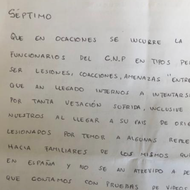 SÉPTIMO
QUE EN OCACIONES SE INCURRE LA
FUNCIONARIOS DEL G.N.P EN TIPOS PE
SER LESIONES, COACCIONES, AMENASAS "ENTRE
QUE AN LLEGADO INTERNOS A INTENTARSE
POR TANTA VESACIÓN SUFRIDA, INCLUSIVE
NUESTROS AL LLEGAR A SU PAIS DE ORIGE
LESIONADOS POR TEMOR A ALGUNAS REPRE
HACIA FAMILIARES DE LOS MISMOS QUE
EN ESPAÑA Y NO SE AN ATREVIDO A
QUE CONTAMOS CON PRUEBAS DE